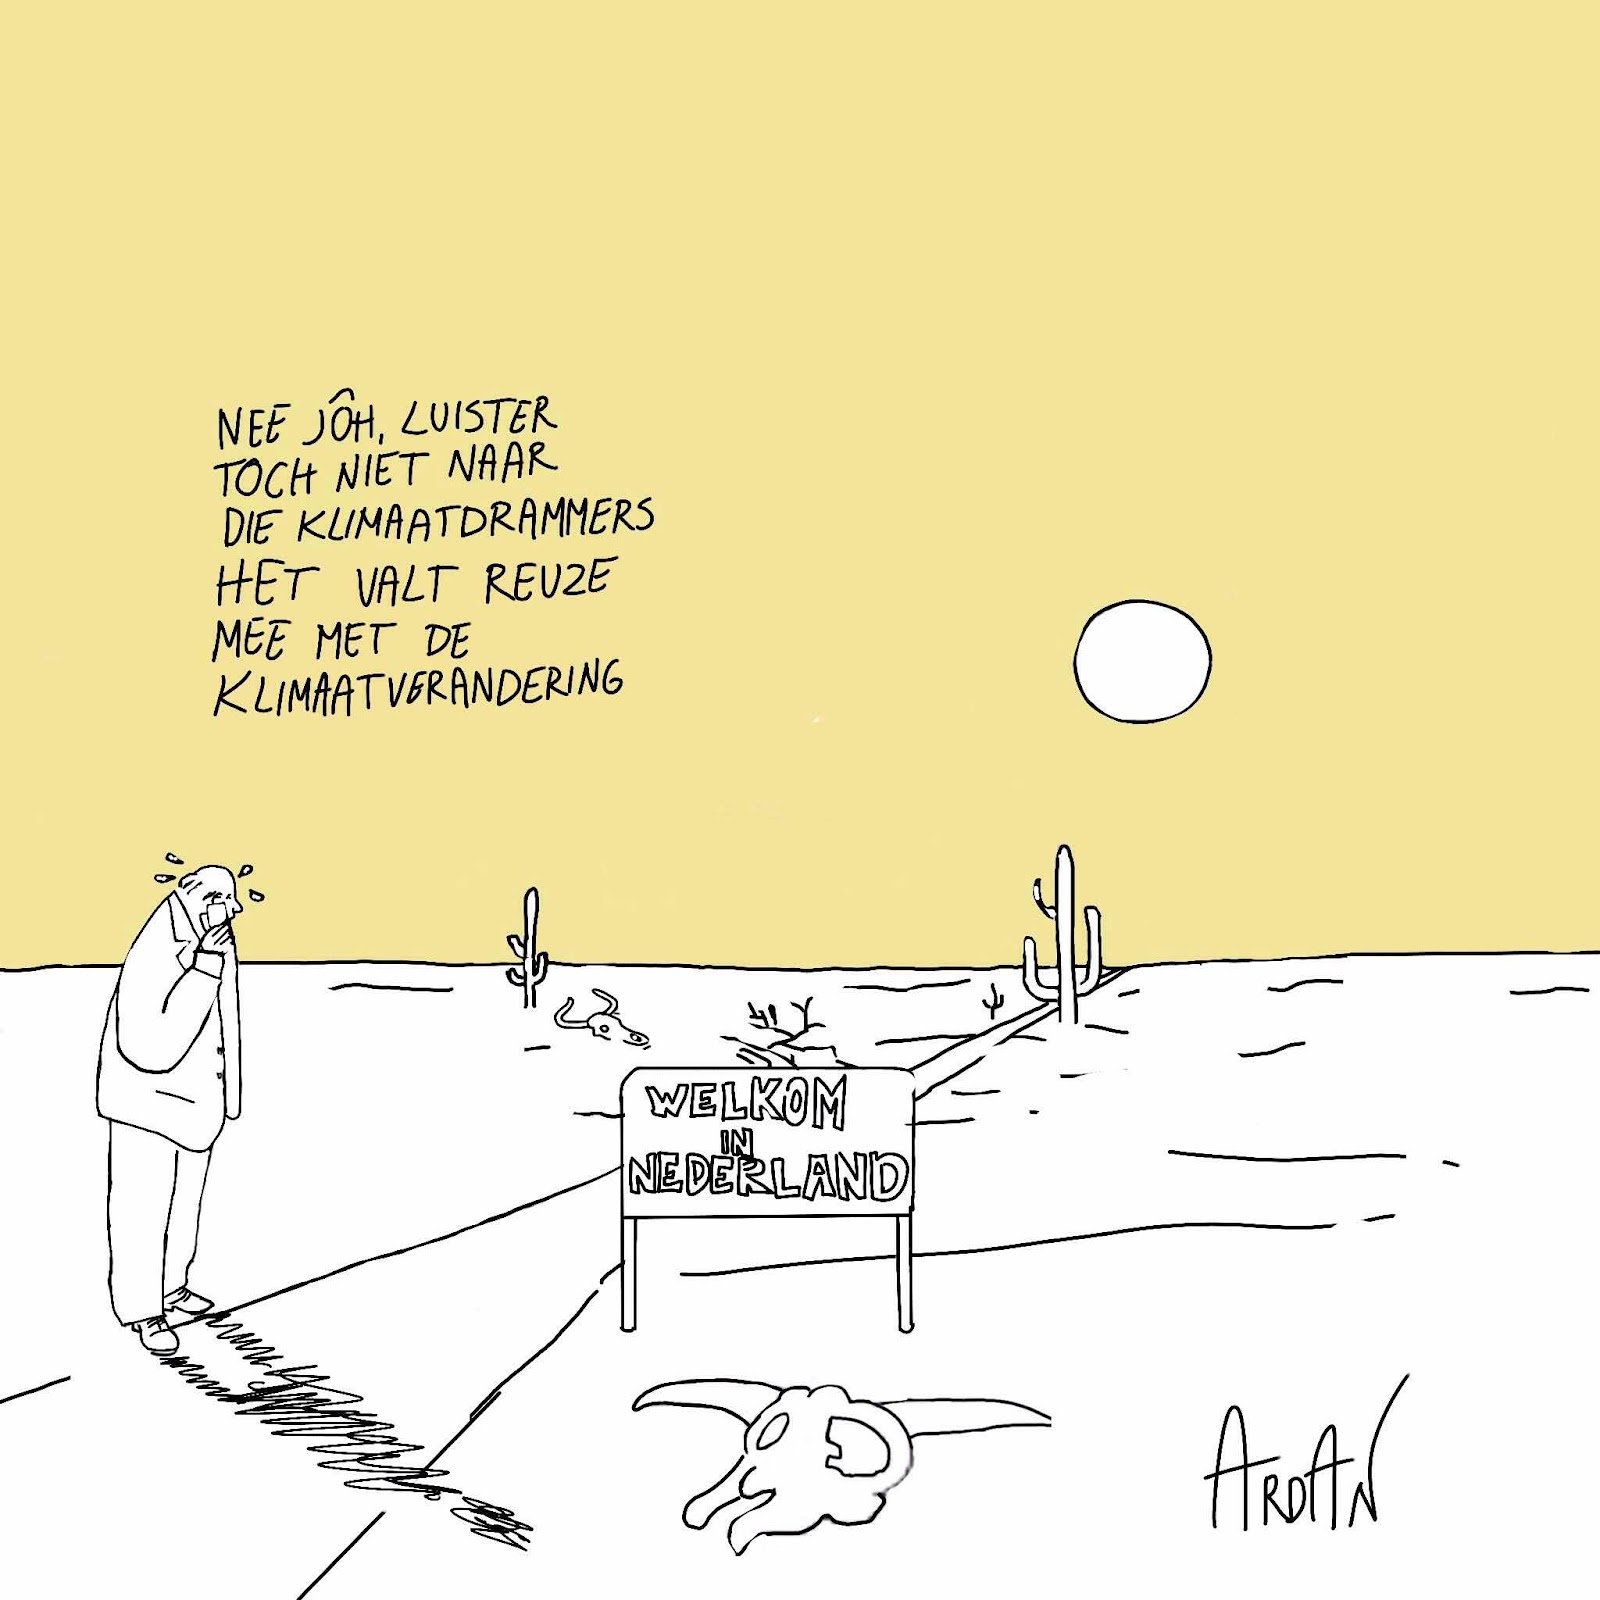 NEE JÔH, LUISTER
TOCH NIET NAAR
DIE KLIMAATDRAMMERS
HET VALT REUZE
MEE MET DE
KLIMAATVERANDERING
WELKOM
IN
NEDERLAND
ARDAN